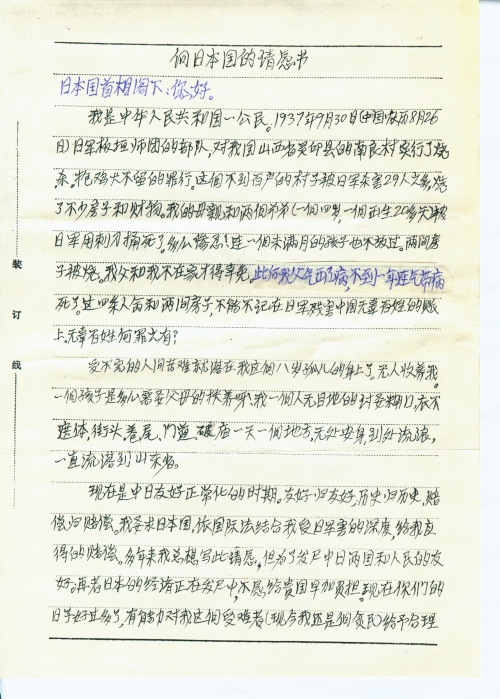 向日本国的请愿书
日本国首相阁下：你好。
我是中华人民共和国一公民。1937年9月30日(中国农历8月26
日)日军板垣师团的部队,对我国山西省灵邱县的南良村实行了烧
杀。抢鸡犬不留的罪行。这个不到百户的村子被日军杀害29人之多,烧
了不少房子和财物。我的母亲和两个弟弟(一个四岁,一个西生20多天)被
日军用刺刀捅死了。多么惨忍！连一个未满月的孩子也不放过。两间房
子被烧。我父和我不在家才得幸免。此后我父气出了病,不到一年连气带病
死了。这四条人命和两间房子,不能不记在日军残害中国无辜百姓的账
上。无辜百姓何罪之有？
受不完的人间苦难就落在我这个八岁孤儿的身上了。无人收养我。
一个孩子是多么需要父母的扶养啊,我一个人无目地的讨要糊口,衣不
遮体,街头、巷尾、门道、破庙一天一个地方,无处安身,到处流浪,
一直流落到山东省。
现在是中日友好正常化的时期。友好归友好,历史归历史,赔
偿归赔偿。我要求日本国,依国际法结合我受日军害的深度,给我应
得的赔偿。多年来我总想写此请愿。但为了发展中日两国和人民的友
好。再者日本的经济正在发展中,不愿给贵国早加负担。现在你们的
日子好过多了,有能力对我这个受难者(现今我还是个贫民)给予合理
装
订
线